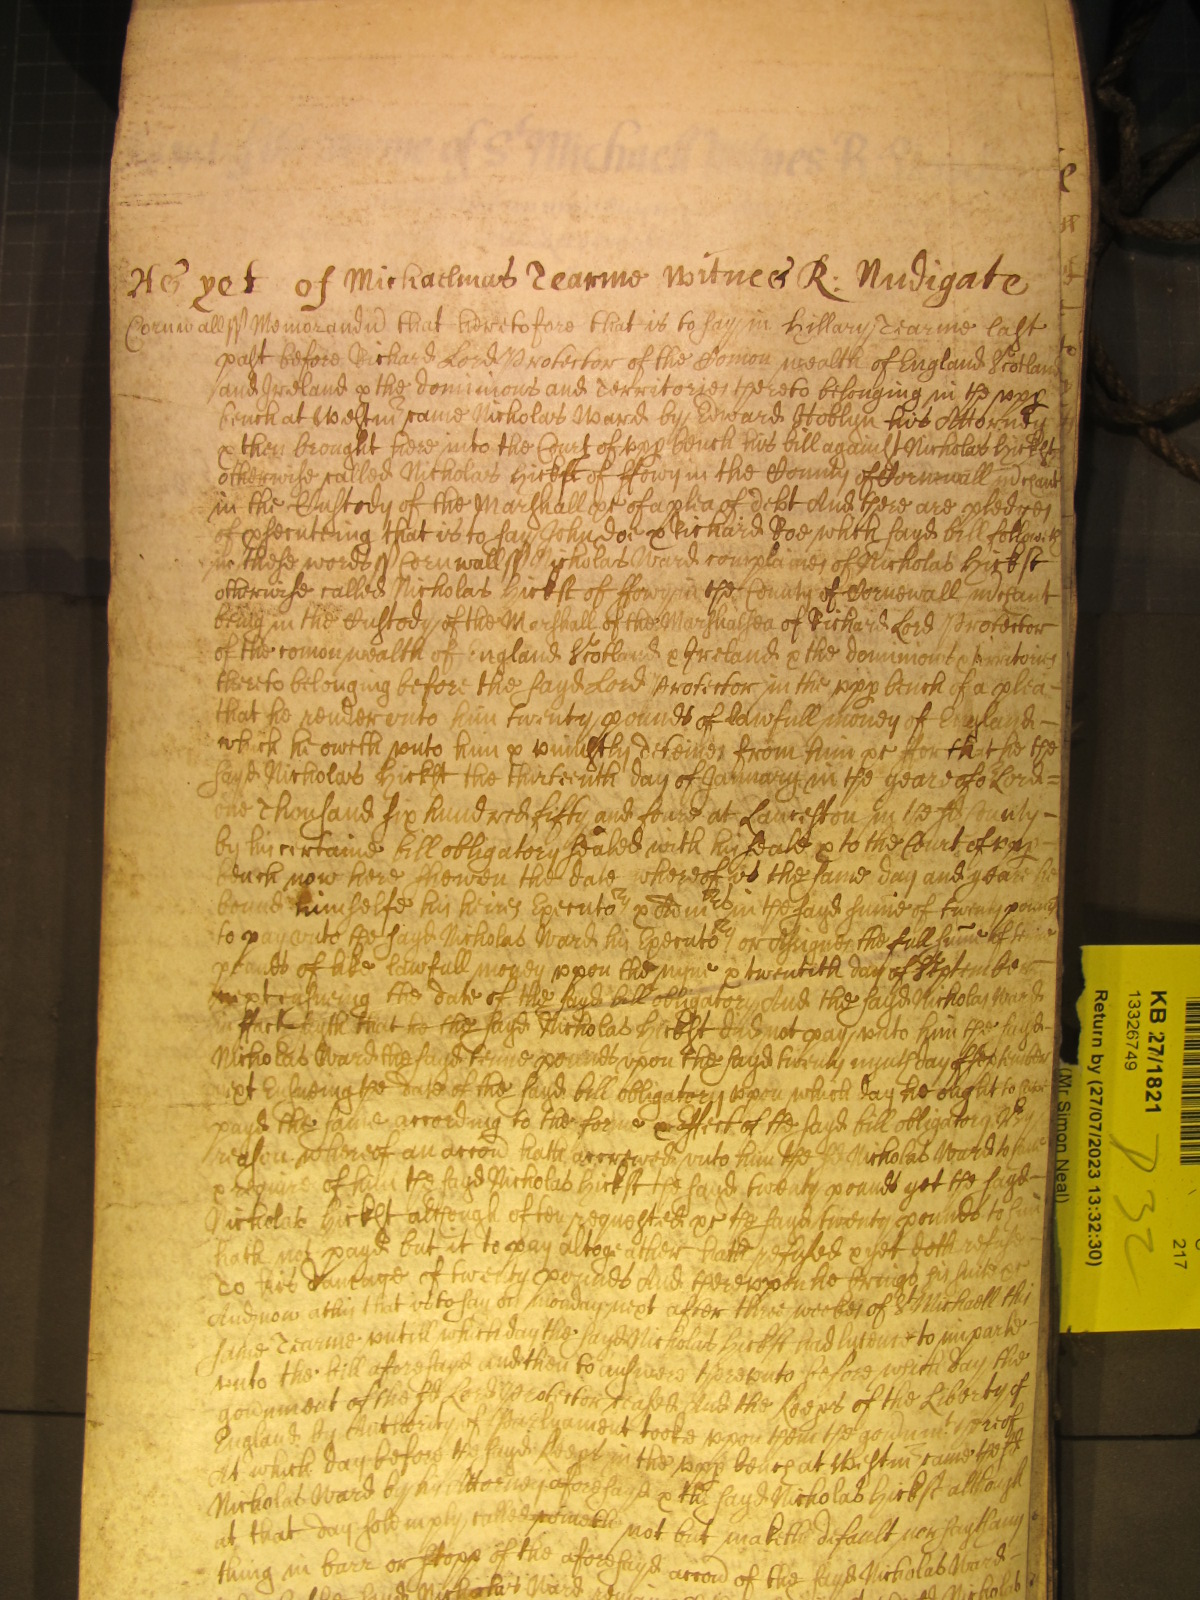 As yet of Michaelmas Tearme Witnes R: Nudigate
Cornwall ss Memorand that heretofore that is to say in Hillary Tearme last
past before Richard Lord Protector of the Comon wealth of England Scotland
and Ireland & the dominions and Territories thereto belonging in the upp
bench at Westm came Nicholas Ward by Edward Hoblyn his Attorney
& then brought here into the Court of upp bench his bill against Nicholas Hickst
otherwise called Nicholas Hickst of ffowy in the County of Cornewall mchant
in the Custody of the Marshall &c of a plea of debt And there are pledges
of psecuting that is to say John Doe & Richard Roe which sayd bill followeth
in these words ss Cornwall ss Nicholas Ward complaines of Nicholas Hickst
otherwise called Nicholas Hickst of ffowy in the County of Cornewall mchant
being in the Custody of the Marshall of the Marshalsea of Richard Lord Protector
of the comon wealth of England Scotland & Ireland & the dominions & territories
thereto belonging before the sayd Lord Protector in the upp bench of a plea
that he render unto him twenty pounds of lawfull money of England
which he oweth unto him & uniustly deteines from him &c ffor that he the
sayd Nicholas Hickst the thirteenth day of January in the yeare of o Lord
one Thousand six hundred fifty and foure at Launceston in the sd County
by his certaine bill obligatory sealed with his seale & to the Court of upp
bench now here shewen the date whereof is the same day and yeare he
bound himselfe his heires Executors & Admrs in the sayd sume of twenty pounds
to pay unto the sayd Nicholas Ward his Executors or Assignes the full sume of tenne
pounds of like lawfull money uppon the nyne & twentith day of September
next ensueing the date of the sayd bill obligatory And the sayd Nicholas Ward
in fact saith that he the sayd Nicholas Hickst did not pay unto him the sayd
Nicholas Ward the sayd tenne pounds upon the sayd twenty nynth day of September
next Ensueing the date of the sayd bill obligatory upon which day he ought to have
payd the same according to the forme & effect of the sayd bill obligatory By
reason whereof an accon hath accrewed unto him the sd Nicholas Ward to have
& require of him the sayd Nicholas Hickst the sayd twenty pounds yet the sayd
Nicholas Hickst although often requested &c the sayd twenty pounds to him
hath not payd but it to pay altogeather hath refused & yet doth refuse
To his damage of twenty pounds And thereuppon he brings his suite &c
And now at this that is to say on monday next after three weekes of St Michaell this
same Tearme untill which day the sayd Nicholas Hickst had licence to imparle
unto the bill aforesayd and then to answere thereunto before which day the
govnment of the sd Lord Protector ceased And the Keeps of the Liberty of
England by Authority of Parlyament tooke uppon them the govnmt thereof
At which day before the sayd Keeps in the upp bench at Westm came the sd
Nicholas Ward by his Attorney aforesayd & the sayd Nicholas Hickst although
at that day solemply called cometh not but maketh default nor sayth any
thing in barr or stopp of the aforesayd accon of the sayd Nicholas Ward
KB 27/1821
13326749
Return by (27/07/2023 13:32:30)
(Mr Simon Neal)
217
P 32